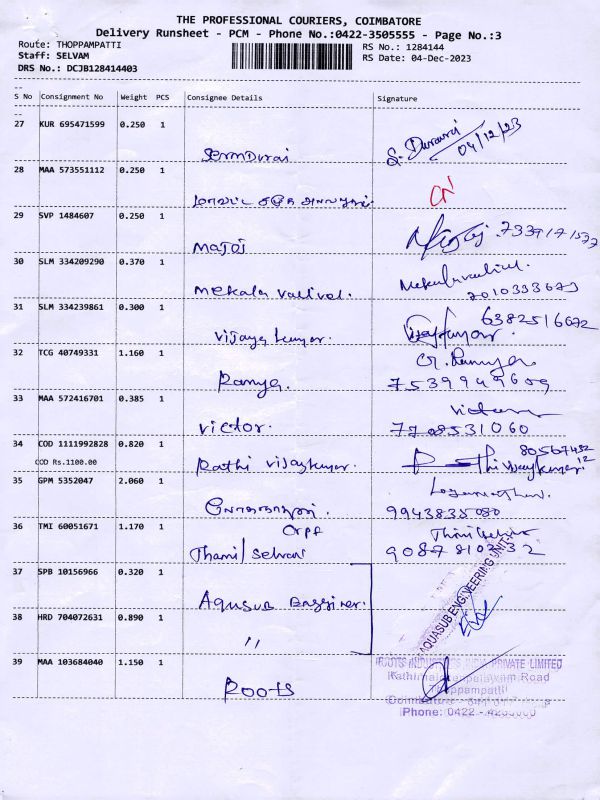 THE PROFESSIONAL COURIERS, COIMBATORE
Delivery Runsheet - PCM - Phone No.:0422-3505555 - Page No.:3
Route: THOPPAMPATTI
RS No.: 1284144
Staff: SELVAM
RS Date: 04-Dec-2023
DRS No.: DCJB128414403
S No Consignment No Weight PCS Consignee Details Signature
27 KUR 695471599 0.250 1
04/12/23
28 MAA 573551112 0.250 1
29 SVP 1484607 0.250 1
Majoj 7339171577
30 SLM 334209290 0.370 1
Mekala vallivel. 7010333673
31 SLM 334239861 0.300 1
Vijaya kumar. 6382516672
32 TCG 40749331 1.160 1
Ramya. 7539949609
33 MAA 572416701 0.385 1
Victor. 7708531060
34 COD 1111992828 0.820 1
COD Rs.1100.00
Rathi Vijaykumar.
35 GPM 5352047 2.060 1
9943835080
36 TMI 60051671 1.170 1
CRPF
Thamil Selvan 9087810332
37 SPB 10156966 0.320 1
Aquasub
AQUASUB ENGINEERING UNIT-
38 HRD 704072631 0.890 1
〃
39 MAA 103684040 1.150 1
Roots
ROOTS INDUSTRIES INDIA PRIVATE LIMITED
Kathirnaickenpalayam Road
Thoppampatti
Coimbatore
Phone: 0422 -